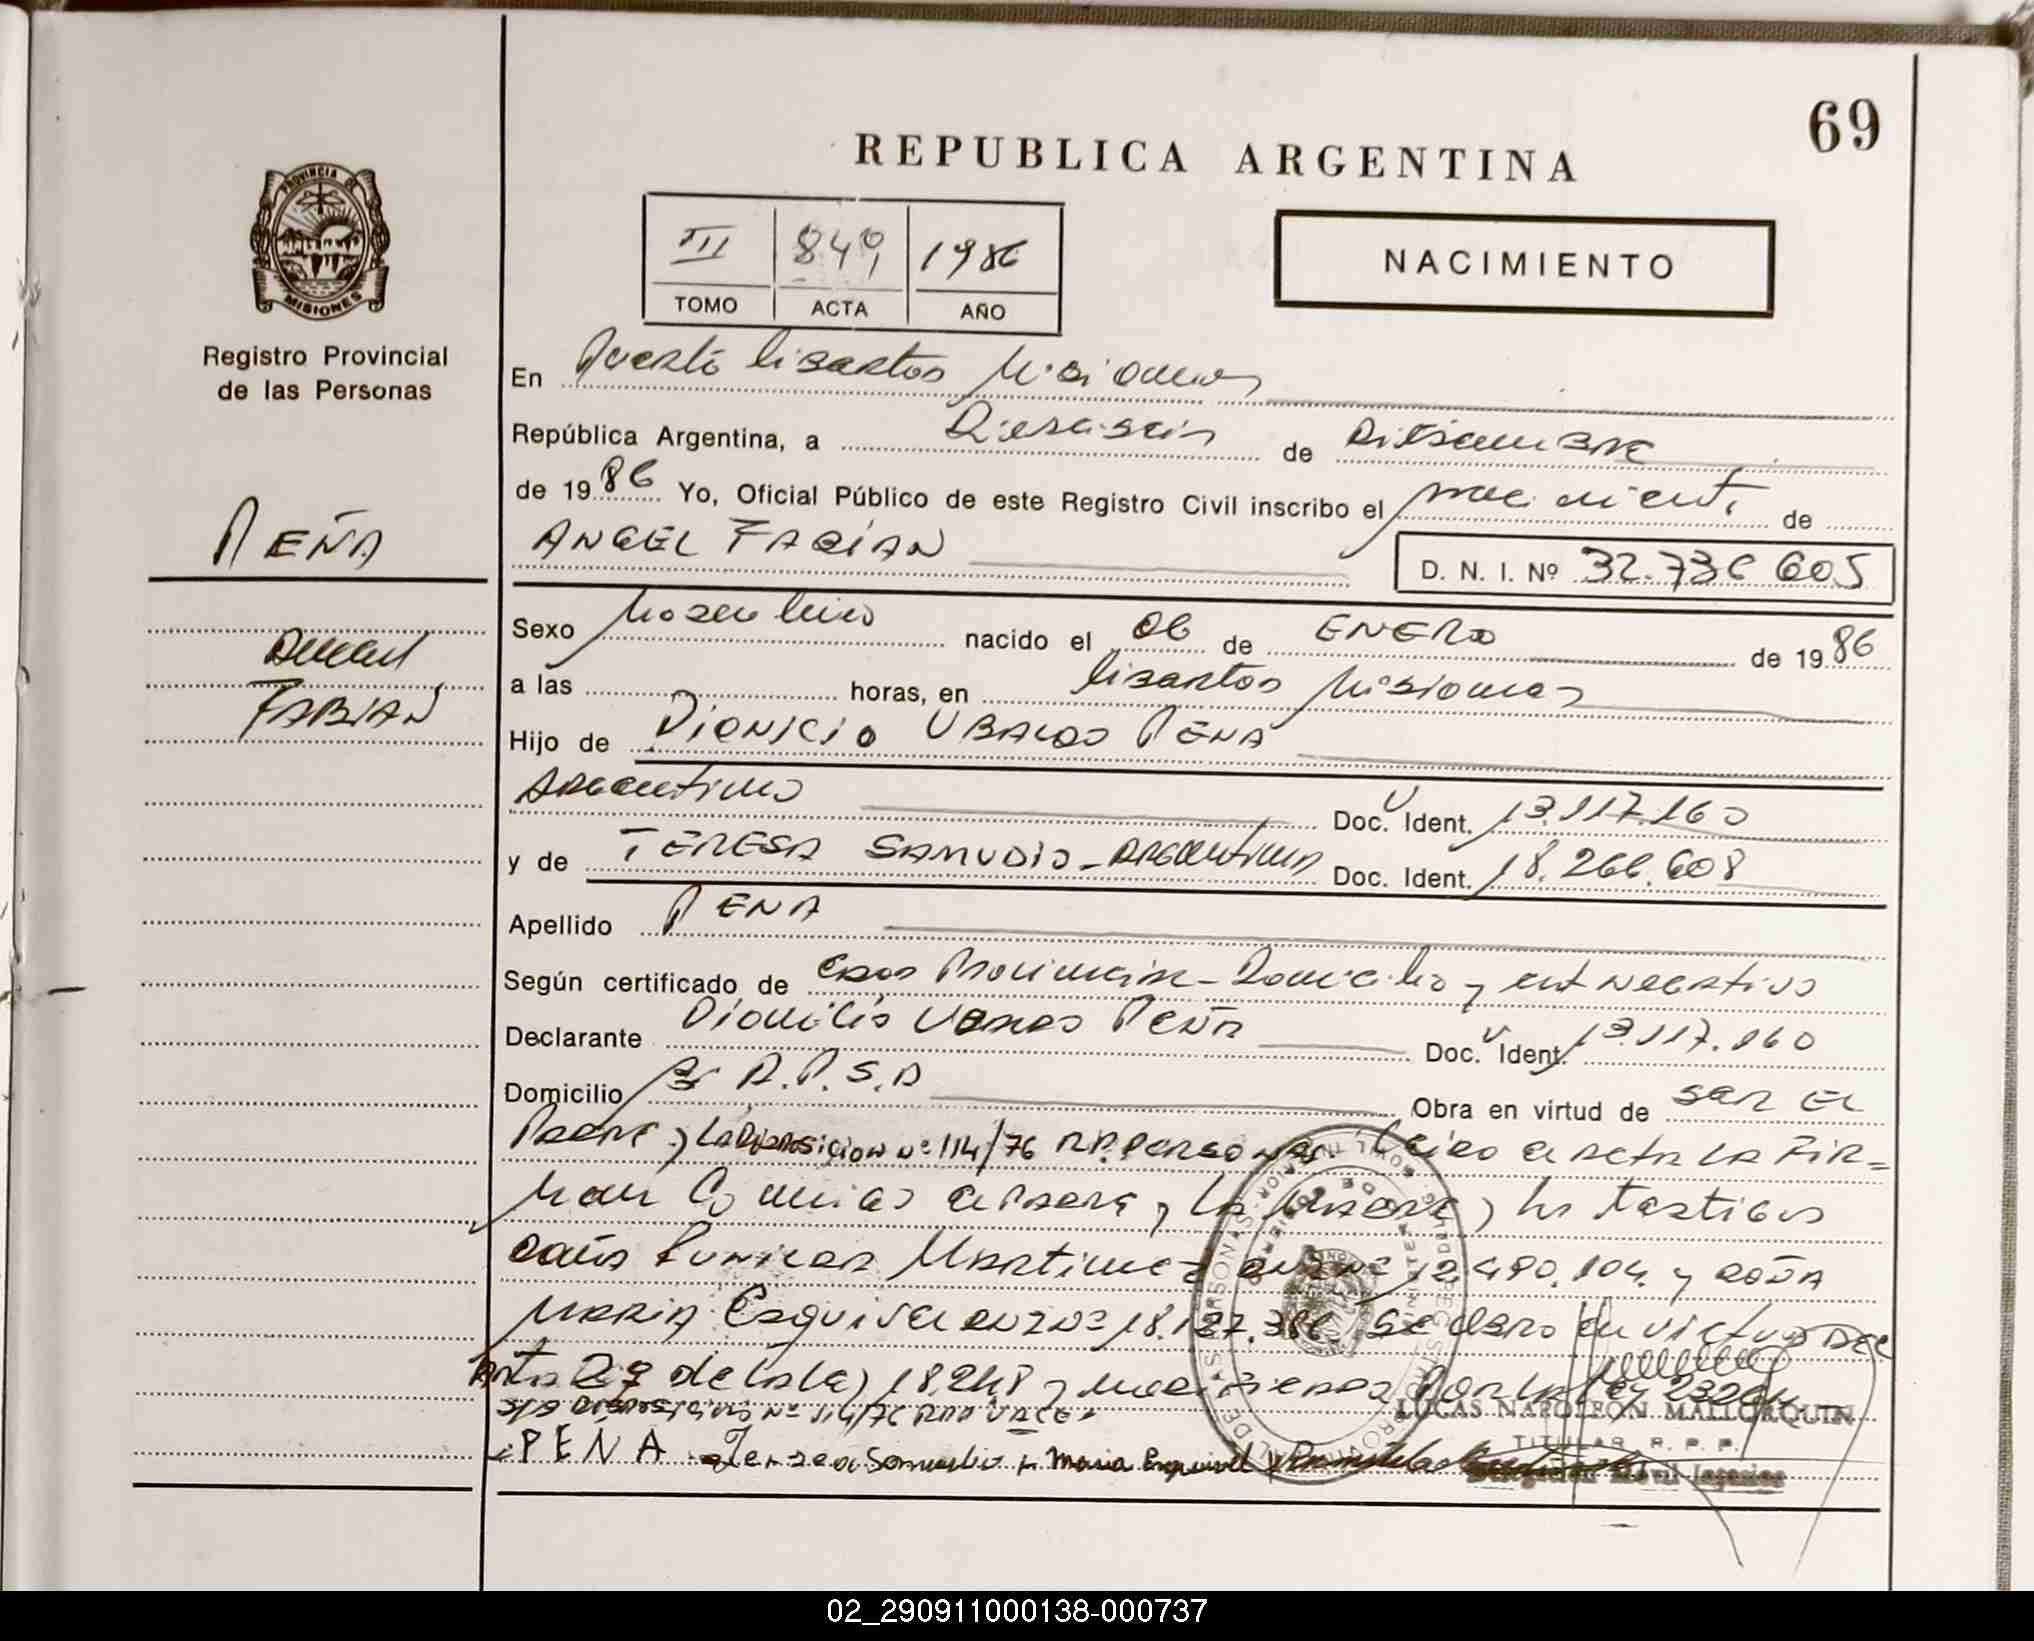 69
REPUBLICA ARGENTINA
PROVINCIA DE
MISIONES
Registro Provincial
de las Personas
III 849 1986
TOMO ACTA AÑO
NACIMIENTO
En Puerto Libertad Misiones
República Argentina, a Dieciseis de Diciembre
de 1986 Yo, Oficial Público de este Registro Civil inscribo el nacimiento de
PEÑA
ANGEL FABIAN
D. N. I. Nº 32.736 605
ANGEL
FABIAN
Sexo Masculino nacido el 06 de ENERO de 1986
a las horas, en Libertad Misiones
Hijo de DIONICIO UBALDO PEÑA
Argentino Doc. Ident. 13.117.160
y de TERESA SAMUDIO - Argentina Doc. Ident. 18.266.608
Apellido PEÑA
Según certificado de Domicilio y
Declarante Dionicio Ubaldo Peña Doc. Ident. 13.117.160
Domicilio Obra en virtud de SER EL
Padre y La Disposicion Nº 114/76 Leido el acta La FIR=
man el Padre, La Madre, los testigos
doña Martinez 12.490.104 y doña
MARIA Esquivel 18.127.386 en virtud del
de la Ley 18.248 y Por la Ley
Disposicion Nº 114/76
LUCAS NAPOLEON MALLORQUIN
TITULAR R. P. P.
PEÑA Teresa Samudio Maria Esquivel
02_290911000138-000737